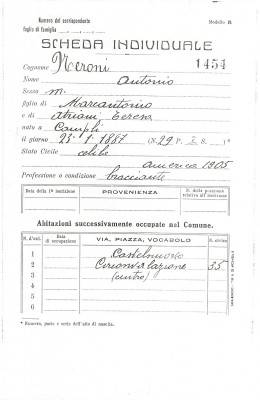 Numero del corrispondente
foglio di famiglia
Modello B.
SCHEDA INDIVIDUALE
Cognome Neroni 1454
Nome Antonio
Sesso m.
figlio di Marcantonio
e di Adriani Teresa
nato a Campli
il giorno 23-1-1887 (N. 29 P. 2 S. 1ª
Stato Civile celibe
America 1905
Professione o condizione bracciante
Data della 1ª iscrizione
PROVENIENZA
N. della posizione relativa all'iscrizione
Abitazioni successivamente occupate nel Comune.
N. d'ord.
Data di occupazione
VIA, PIAZZA, VOCABOLO
N. civico
1 Castelnuovo
2 Circonvallazione 35
3 (centro)
4
5
6
* Numero, parte e serie dell'atto di nascita.